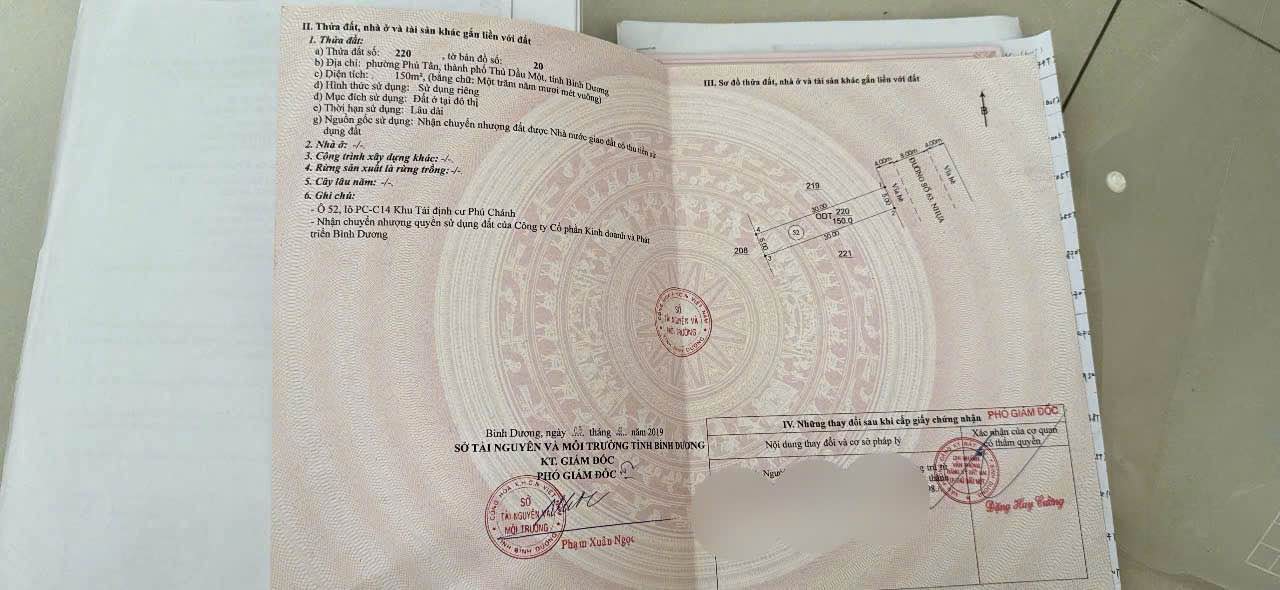 II. Thửa đất, nhà ở và tài sản khác gắn liền với đất
1. Thửa đất:
a) Thửa đất số: 220 , tờ bản đồ số: 20
b) Địa chỉ: phường Phú Tân, thành phố Thủ Dầu Một, tỉnh Bình Dương
c) Diện tích: 150m², (bằng chữ: Một trăm năm mươi mét vuông)
d) Hình thức sử dụng: Sử dụng riêng
đ) Mục đích sử dụng: Đất ở tại đô thị
e) Thời hạn sử dụng: Lâu dài
g) Nguồn gốc sử dụng: Nhận chuyển nhượng đất được Nhà nước giao đất có thu tiền sử
dụng đất
2. Nhà ở: -/-.
3. Công trình xây dựng khác: -/-.
4. Rừng sản xuất là rừng trồng: -/-.
5. Cây lâu năm: -/-.
6. Ghi chú:
- Ô 52, lô PC-C14 Khu Tái định cư Phú Chánh
- Nhận chuyển nhượng quyền sử dụng đất của Công ty Cổ phần Kinh doanh và Phát
triển Bình Dương
Bình Dương, ngày tháng năm 2019
SỞ TÀI NGUYÊN VÀ MÔI TRƯỜNG TỈNH BÌNH DƯƠNG
KT. GIÁM ĐỐC
PHÓ GIÁM ĐỐC
CỘNG HÒA X.H.C.N VIỆT
SỞ
TÀI NGUYÊN VÀ
MÔI TRƯỜNG
TỈNH BÌNH DƯƠNG
Phạm Xuân Ngọc
CỘNG HÒA X.H.C.N VIỆT NAM
SỞ
TÀI NGUYÊN VÀ
MÔI TRƯỜNG
TỈNH BÌNH DƯƠNG
III. Sơ đồ thửa đất, nhà ở và tài sản khác gắn liền với đất
B
4.00m 8.00m 4.00m
Vỉa hè
ĐƯỜNG SỐ 63, NHỰA
Vỉa hè
219
30.00
1
5.00
2
ODT 220
150.0
52
4
5.00
3
30.00
208
221
IV. Những thay đổi sau khi cấp giấy chứng nhận
PHÓ GIÁM ĐỐC
Nội dung thay đổi và cơ sở pháp lý
Xác nhận của cơ quan
có thẩm quyền
thành
CHI NHÁNH
VĂN PHÒNG
Đặng Huy Cường